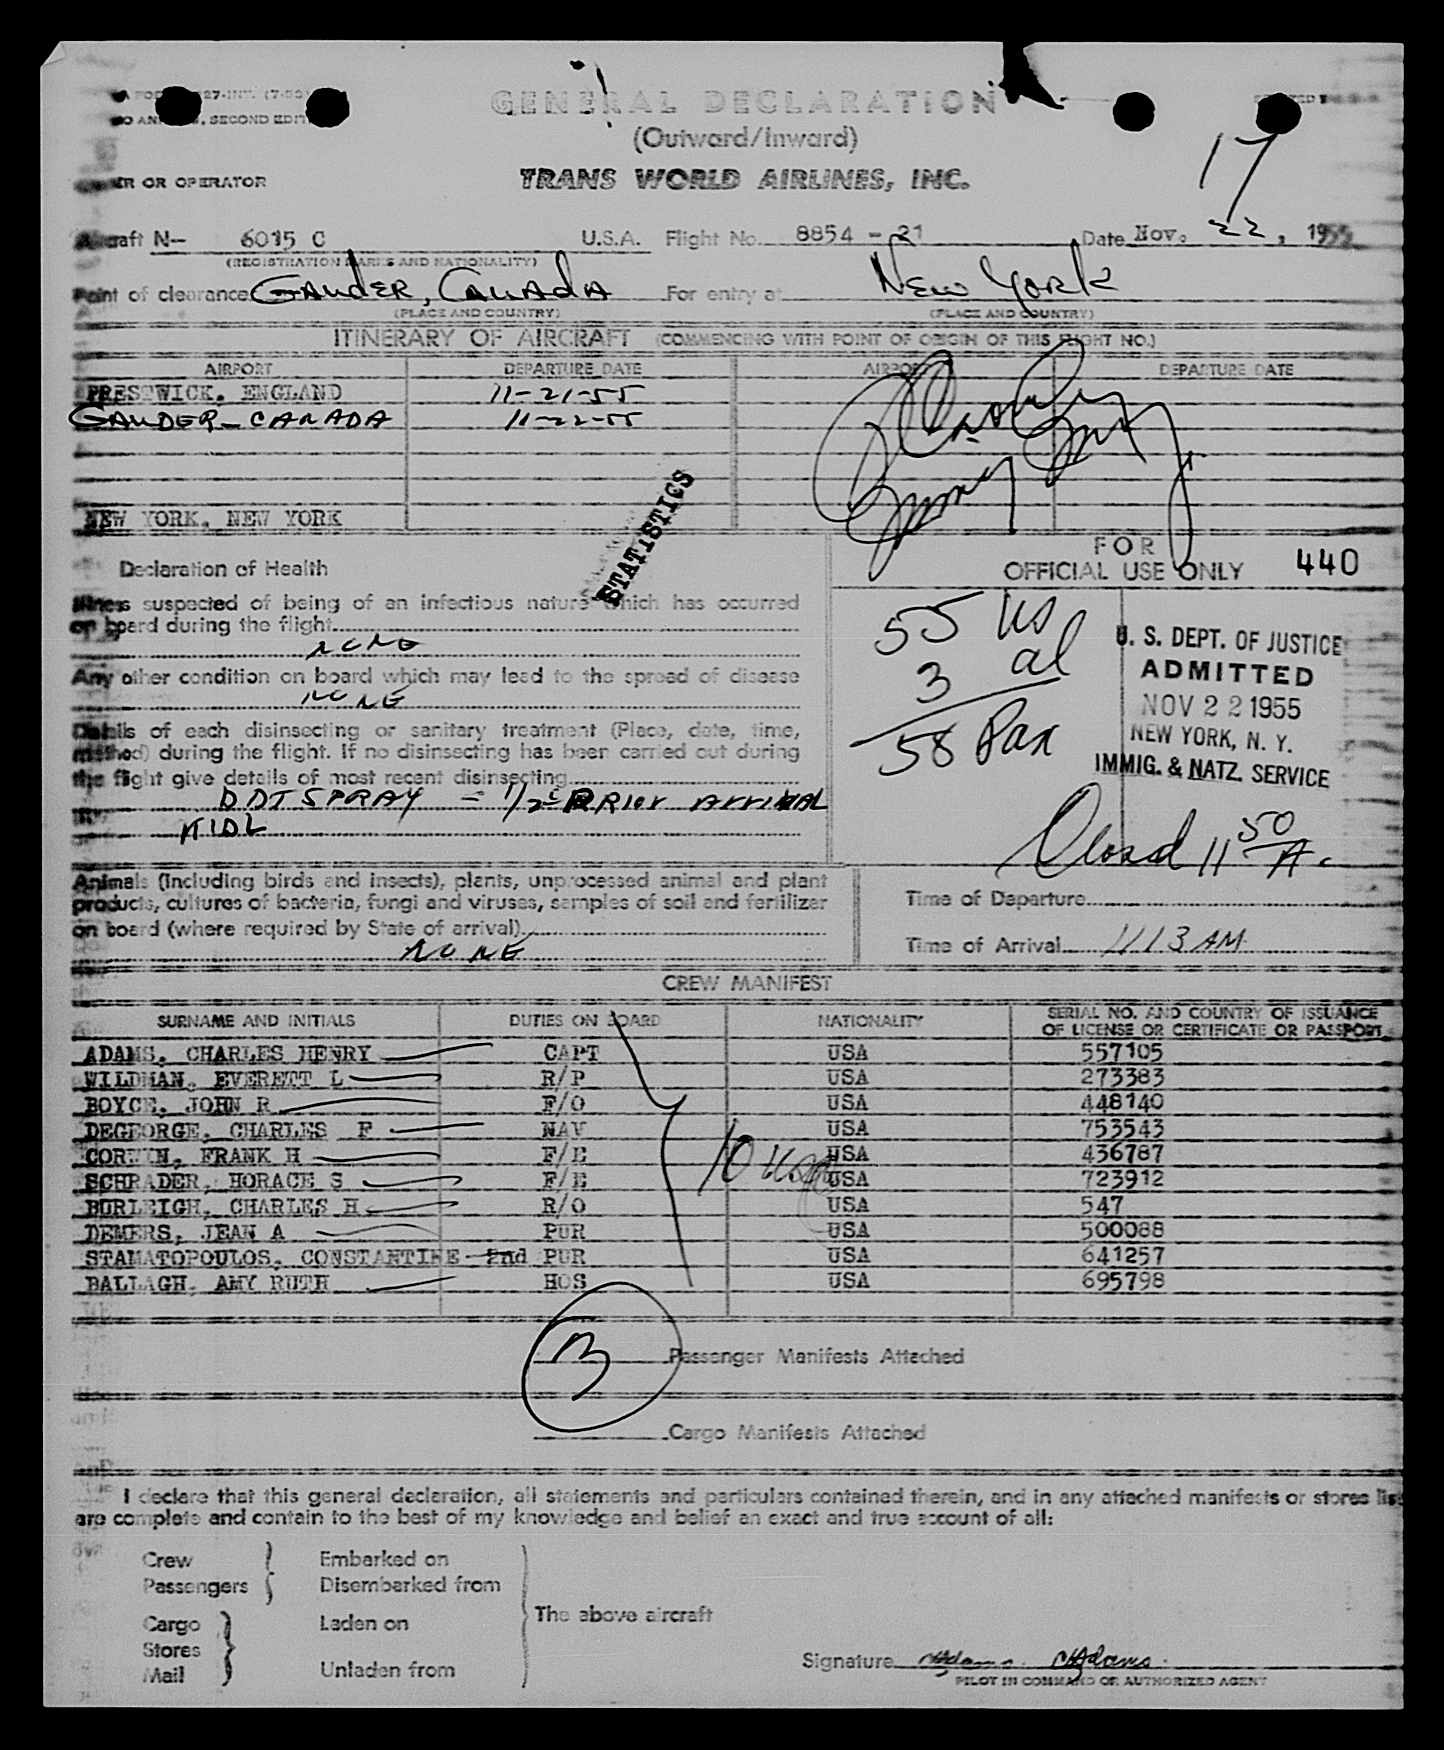 GENERAL DECLARATION
(Outward/Inward)
, SECOND EDIT
17
OR OPERATOR
TRANS WORLD AIRLINES, INC.
Aircraft N— 6015 C U.S.A. Flight No. 8854 - 21 Date Nov. 22, 1955
(REGISTRATION MARKS AND NATIONALITY)
Point of clearance GANDER, CANADA For entry at New York
(PLACE AND COUNTRY) (PLACE AND COUNTRY)
ITINERARY OF AIRCRAFT (COMMENCING WITH POINT OF ORIGIN OF THIS FLIGHT NO.)
AIRPORT DEPARTURE DATE AIRPORT DEPARTURE DATE
PRESTWICK, ENGLAND 11-21-55
GANDER - CANADA 11-22-55
NEW YORK, NEW YORK
STATISTICS
FOR
OFFICIAL USE ONLY 440
Declaration of Health
Illness suspected of being of an infectious nature which has occurred
on board during the flight
NONE
Any other condition on board which may lead to the spread of disease
NONE
Details of each disinsecting or sanitary treatment (Place, date, time,
method) during the flight. If no disinsecting has been carried out during
the flight give details of most recent disinsecting
DDT SPRAY - 1/2 PRIOR ARRIVAL
KIDL
55 US
3 al
58 Pax
U. S. DEPT. OF JUSTICE
ADMITTED
NOV 22 1955
NEW YORK, N. Y.
IMMIG. & NATZ. SERVICE
Closed 11 50 A.
Animals (including birds and insects), plants, unprocessed animal and plant
products, cultures of bacteria, fungi and viruses, samples of soil and fertilizer
on board (where required by State of arrival)
NONE
Time of Departure
Time of Arrival 1113 AM
CREW MANIFEST
SURNAME AND INITIALS DUTIES ON BOARD NATIONALITY SERIAL NO. AND COUNTRY OF ISSUANCE
OF LICENSE OR CERTIFICATE OR PASSPORT
ADAMS, CHARLES HENRY CAPT USA 557105
WILDMAN, EVERETT L R/P USA 273383
BOYCE, JOHN R F/O USA 448140
DEGEORGE, CHARLES F NAV USA 753543
CORWIN, FRANK H F/E USA 436787
SCHRADER, HORACE S F/E USA 723912
BURLEIGH, CHARLES H R/O USA 547
DEMERS, JEAN A PUR USA 500088
STAMATOPOULOS, CONSTANTINE 2nd PUR USA 641257
BALLAGH, AMY RUTH HOS USA 695798
10
3 Passenger Manifests Attached
Cargo Manifests Attached
I declare that this general declaration, all statements and particulars contained therein, and in any attached manifests or stores lis
are complete and contain to the best of my knowledge and belief an exact and true account of all:
Crew Embarked on
Passengers Disembarked from
The above aircraft
Cargo Laden on
Stores
Mail Unladen from
Signature CHAdams
PILOT IN COMMAND OR AUTHORIZED AGENT